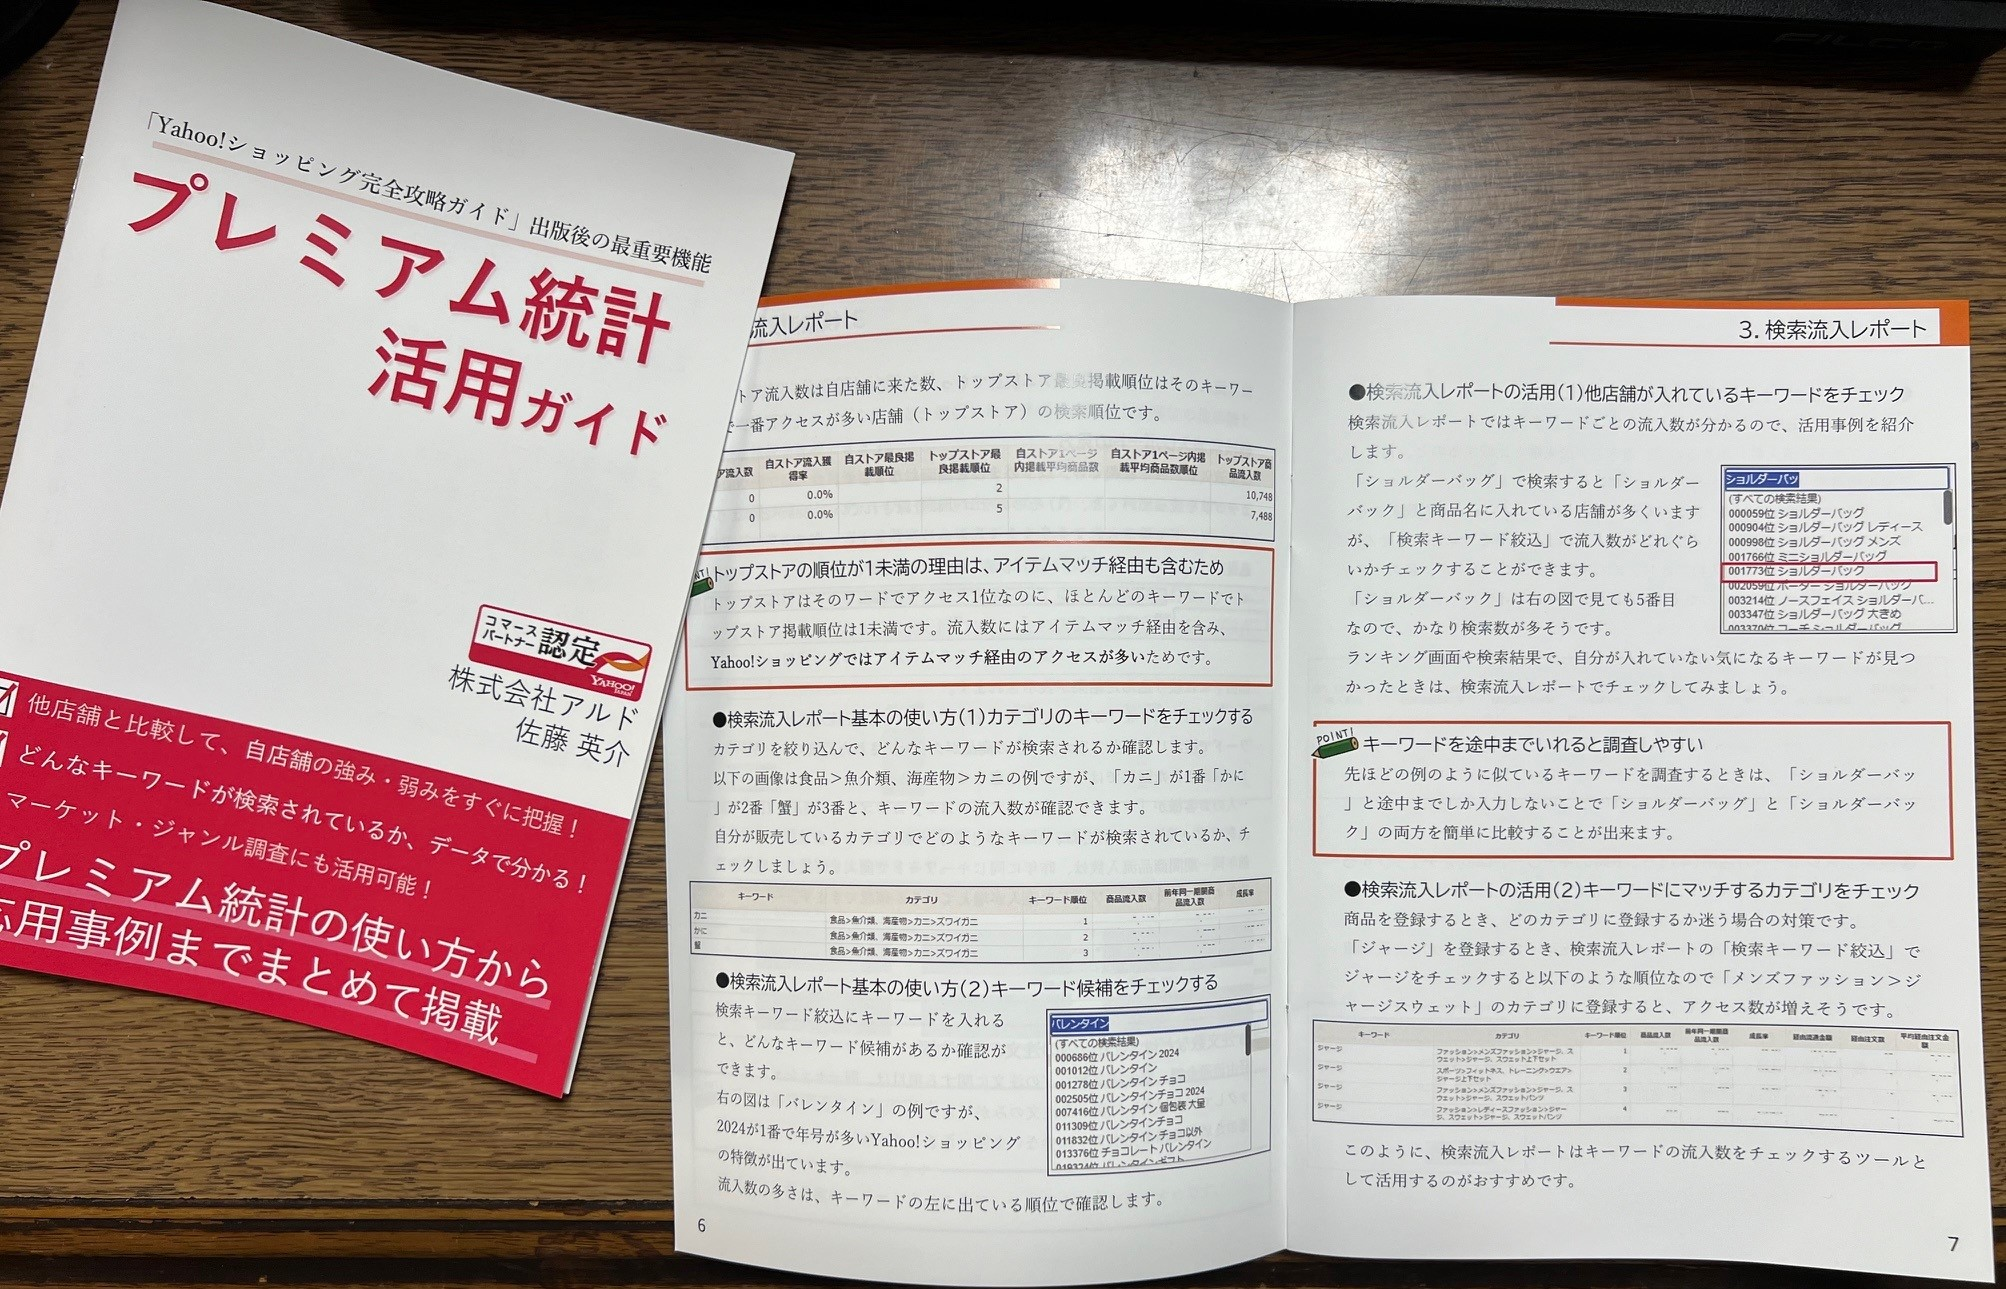 「Yahoo!ショッピング完全攻略ガイド」出版後の最重要機能
プレミアム統計
活用ガイド
コマース
パートナー 認定
YAHOO!
JAPAN
株式会社アルド
佐藤 英介
他店舗と比較して、自店舗の強み・弱みをすぐに把握！
どんなキーワードが検索されているか、データで分かる！
マーケット・ジャンル調査にも活用可能！
プレミアム統計の使い方から
応用事例までまとめて掲載
流入レポート
トア流入数は自店舗に来た数、トップストア最良掲載順位はそのキーワー
で一番アクセスが多い店舗（トップストア）の検索順位です。
ア流入数 自ストア流入獲得率 自ストア最良掲載順位 トップストア最良掲載順位 自ストア1ページ内掲載平均商品数 自ストア1ページ内掲載平均商品数順位 トップストア商品流入数
0 0.0% 2 10,748
0 0.0% 5 7,488
トップストアの順位が1未満の理由は、アイテムマッチ経由も含むため
トップストアはそのワードでアクセス1位なのに、ほとんどのキーワードでト
ップストア掲載順位は1未満です。流入数にはアイテムマッチ経由を含み、
Yahoo!ショッピングではアイテムマッチ経由のアクセスが多いためです。
●検索流入レポート基本の使い方(1)カテゴリのキーワードをチェックする
カテゴリを絞り込んで、どんなキーワードが検索されるか確認します。
以下の画像は食品＞魚介類、海産物＞カニの例ですが、「カニ」が1番「かに
」が2番「蟹」が3番と、キーワードの流入数が確認できます。
自分が販売しているカテゴリでどのようなキーワードが検索されているか、チ
ェックしましょう。
キーワード カテゴリ キーワード順位 商品流入数 前年同一期間商品流入数 成長率
カニ 食品>魚介類、海産物>カニ>ズワイガニ 1
かに 食品>魚介類、海産物>カニ>ズワイガニ 2
蟹 食品>魚介類、海産物>カニ>ズワイガニ 3
●検索流入レポート基本の使い方(2)キーワード候補をチェックする
検索キーワード絞込にキーワードを入れる
と、どんなキーワード候補があるか確認が
できます。
右の図は「バレンタイン」の例ですが、
2024が1番で年号が多いYahoo!ショッピング
の特徴が出ています。
流入数の多さは、キーワードの左に出ている順位で確認します。
バレンタイン
(すべての検索結果)
000686位 バレンタイン 2024
001012位 バレンタイン
001278位 バレンタイン チョコ
002505位 バレンタインチョコ 2024
007416位 バレンタイン 個包装 大量
011309位 バレンタインチョコ
011832位 バレンタイン チョコ以外
013376位 チョコレート バレンタイン
019324位 バレンタインギフト
6
3. 検索流入レポート
●検索流入レポートの活用(1)他店舗が入れているキーワードをチェック
検索流入レポートではキーワードごとの流入数が分かるので、活用事例を紹介
します。
「ショルダーバッグ」で検索すると「ショルダー
バック」と商品名に入れている店舗が多くいます
が、「検索キーワード絞込」で流入数がどれぐら
いかチェックすることができます。
「ショルダーバック」は右の図で見ても5番目
なので、かなり検索数が多そうです。
ランキング画面や検索結果で、自分が入れていない気になるキーワードが見つ
かったときは、検索流入レポートでチェックしてみましょう。
ショルダーバッ
(すべての検索結果)
000059位 ショルダーバッグ
000904位 ショルダーバッグ レディース
000998位 ショルダーバッグ メンズ
001766位 ミニショルダーバッグ
001773位 ショルダーバック
002059位 ポーター ショルダーバッグ
003214位 ノースフェイス ショルダーバ...
003347位 ショルダーバッグ 大きめ
003370位 コーチ ショルダーバッグ
POINT!
キーワードを途中までいれると調査しやすい
先ほどの例のように似ているキーワードを調査するときは、「ショルダーバッ
」と途中までしか入力しないことで「ショルダーバッグ」と「ショルダーバッ
ク」の両方を簡単に比較することが出来ます。
●検索流入レポートの活用(2)キーワードにマッチするカテゴリをチェック
商品を登録するとき、どのカテゴリに登録するか迷う場合の対策です。
「ジャージ」を登録するとき、検索流入レポートの「検索キーワード絞込」で
ジャージをチェックすると以下のような順位なので「メンズファッション＞ジ
ャージスウェット」のカテゴリに登録すると、アクセス数が増えそうです。
キーワード カテゴリ キーワード順位 商品流入数 前年同一期間商品流入数 成長率 経由流通金額 経由注文数 平均経由注文金額
ジャージ ファッション>メンズファッション>ジャージ、スウェット>ジャージ、スウェット上下セット 1
ジャージ スポーツ>フィットネス、トレーニング>ウエア>ジャージ上下セット 2
ジャージ ファッション>メンズファッション>ジャージ、スウェット>ジャージ、スウェットパンツ 3
ジャージ ファッション>レディースファッション>ジャージ、スウェット>ジャージ、スウェットパンツ 4
このように、検索流入レポートはキーワードの流入数をチェックするツールと
して活用するのがおすすめです。
7